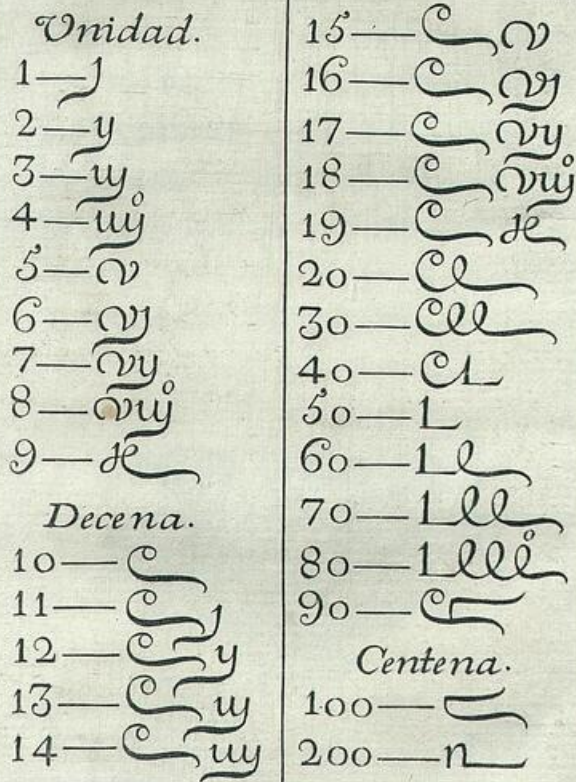 Unidad.
1—j
2—ij
3—iij
4—iiijº
5—v
6—vj
7—vij
8—viijº
9—ix
Decena.
10—x
11—xj
12—xij
13—xiij
14—xiiij
15—xv
16—xvj
17—xvij
18—xviijº
19—xix
20—xx
30—xxx
40—xL
50—L
60—Lx
70—Lxx
80—Lxxxº
90—xc
Centena.
100—c
200—